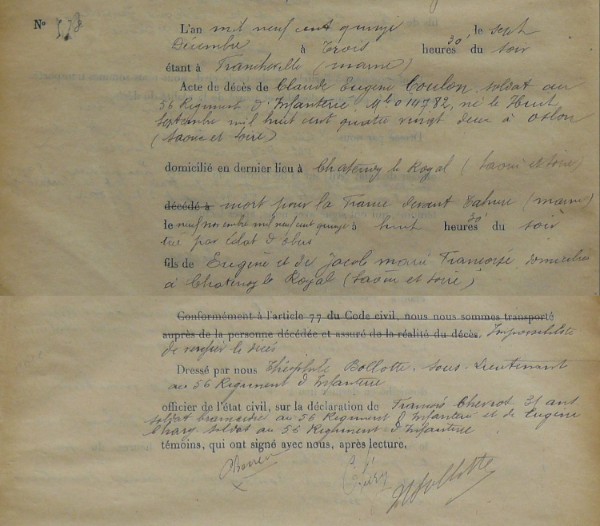 N° 578
L'an mil neuf cent quinze le sept
Décembre à trois heures 30' du soir
étant à Francheville (marne)
Acte de décès de Claude Eugène Coulon, soldat au
56 Regiment d'Infanterie, Mle 014782, né le Huit
septembre mil huit cent quatre vingt deux à Oslon
(Saône et Loire)
domicilié en dernier lieu à Chatenoy le Royal (Saône et Loire)
décédé à mort pour la France devant Tahure (marne)
le neuf novembre mil neuf cent quinze à huit heures 30' du soir
tué par éclat d'obus
fils de Eugène et de Jacob marie Françoise domiciliés
à Chatenoy le Royal (Saône et Loire)
Conformément à l'article 77 du Code civil, nous nous sommes transporté
auprès de la personne décédée et assuré de la réalité du décès. Impossibilité
de verifier le décès
Dressé par nous Théophile Bollotte sous-Lieutenant
au 56 Regiment d'Infanterie
officier de l'état civil, sur la déclaration de François 31 ans
soldat brancardier au 56 Regiment d'Infanterie et de Eugène
soldat au 56 Regiment d'Infanterie
témoins, qui ont signé avec nous, après lecture.
Bollotte